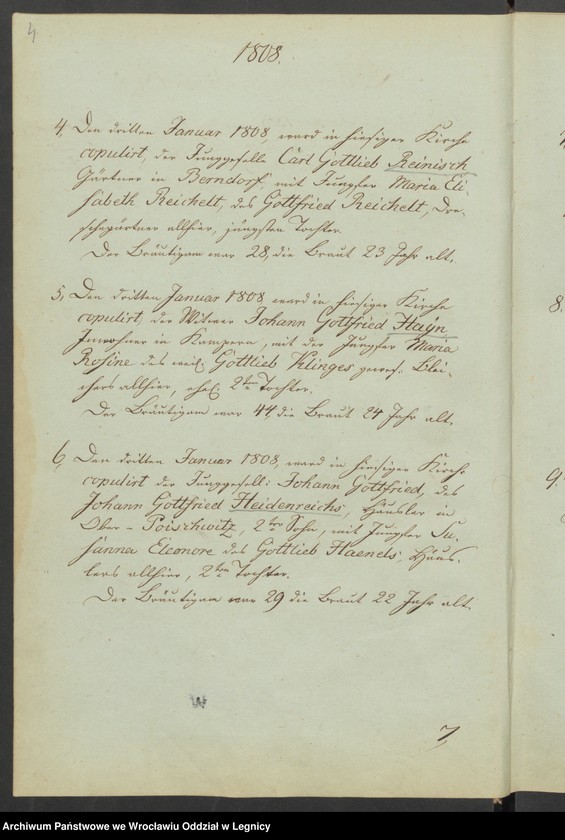 4
1808.
4, Den dritten Januar 1808, ward in hiesiger Kirche
copulirt, der Junggeselle Carl Gottlieb Reinisch
Gärtner in Berndorf, mit Jungfer Maria Eli-
sabeth Reichelt, des Gottfried Reichelt, Dre-
schgärtner allhier, jüngsten Tochter.
Der Bräutigam war 28, die Braut 23 Jahr alt.
5, Den dritten Januar 1808, ward in hiesiger Kirche
copulirt, der Witwer Johann Gottfried Hayn
Inwohner in Kampern, mit der Jungfer Maria
Rosine des weil: Gottlieb Klinges gewes: Blei-
chers allhier, ehel: 2te Tochter.
Der Bräutigam war 44, die Braut 24 Jahr alt.
6, Den dritten Januar 1808, ward in hiesiger Kirche
copulirt der Junggesell: Johann Gottfried, des
Johann Gottfried Heidenreichs, Häusler in
Ober-Poischwitz, 2ter Sohn, mit Jungfer Su-
sanna Eleonore des Gottlieb Haenels, Häus-
lers allhier, 2ten Tochter.
Der Bräutigam war 29 die Braut 22 Jahr alt.
7,
8.
9.
Archiwum Państwowe we Wrocławiu Oddział w Legnicy